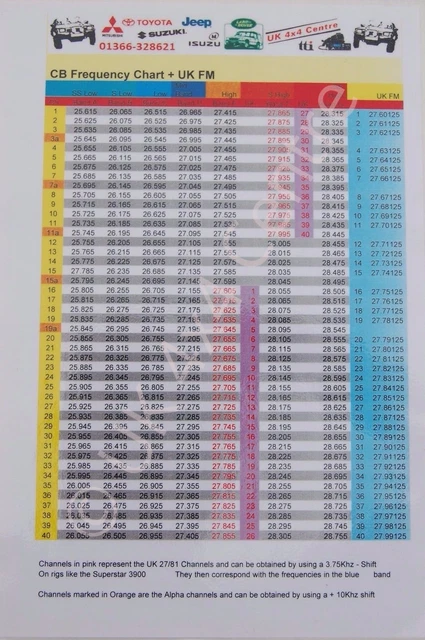 MITSUBISHI TOYOTA Jeep
SUZUKI
ISUZU
UK 4x4 Centre
tti
01366-328621
CB Frequency Chart + UK FM
SS Low S Low Low High UK FM
1 25.615 26.065 26.515 26.965 27.415 27.865 27 28.315 1 27.60125
2 25.625 26.075 26.525 26.975 27.425 27.875 28 28.325 2 27.61125
3 25.635 26.085 26.535 26.985 27.435 27.885 29 28.335 3 27.62125
3a 25.645 26.095 26.545 26.995 27.445 27.895 30 28.345
4 25.655 26.105 26.555 27.005 27.455 27.905 31 28.355 4 27.63125
5 25.665 26.115 26.565 27.015 27.465 27.915 32 28.365 5 27.64125
6 25.675 26.125 26.575 27.025 27.475 27.925 33 28.375 6 27.65125
7 25.685 26.135 26.585 27.035 27.485 27.935 34 28.385 7 27.66125
7a 25.695 26.145 26.595 27.045 27.495 27.945 35 28.395
8 25.705 26.155 26.605 27.055 27.505 27.955 36 28.405 8 27.67125
9 25.715 26.165 26.615 27.065 27.515 27.965 37 28.415 9 27.68125
10 25.725 26.175 26.625 27.075 27.525 27.975 38 28.425 10 27.69125
11 25.735 26.185 26.635 27.085 27.535 27.985 39 28.435 11 27.70125
11a 25.745 26.195 26.645 27.095 27.545 27.995 40 28.445
12 25.755 26.205 26.655 27.105 27.555 28.005 28.455 12 27.71125
13 25.765 26.215 26.665 27.115 27.565 28.015 28.465 13 27.72125
14 25.775 26.225 26.675 27.125 27.575 28.025 28.475 14 27.73125
15 25.785 26.235 26.685 27.135 27.585 28.035 28.485 15 27.74125
15a 25.795 26.245 26.695 27.145 27.595 28.045 28.495
16 25.805 26.255 26.705 27.155 27.605 1 28.055 28.505 16 27.75125
17 25.815 26.265 26.715 27.165 27.615 2 28.065 28.515 17 27.76125
18 25.825 26.275 26.725 27.175 27.625 3 28.075 28.525 18 27.77125
19 25.835 26.285 26.735 27.185 27.635 4 28.085 28.535 19 27.78125
19a 25.845 26.295 26.745 27.195 27.645 5 28.095 28.545
20 25.855 26.305 26.755 27.205 27.655 6 28.105 28.555 20 27.79125
21 25.865 26.315 26.765 27.215 27.665 7 28.115 28.565 21 27.80125
22 25.875 26.325 26.775 27.225 27.675 8 28.125 28.575 22 27.81125
23 25.885 26.335 26.785 27.235 27.685 9 28.135 28.585 23 27.82125
24 25.895 26.345 26.795 27.245 27.695 10 28.145 28.595 24 27.83125
25 25.905 26.355 26.805 27.255 27.705 11 28.155 28.605 25 27.84125
26 25.915 26.365 26.815 27.265 27.715 12 28.165 28.615 26 27.85125
27 25.925 26.375 26.825 27.275 27.725 13 28.175 28.625 27 27.86125
28 25.935 26.385 26.835 27.285 27.735 14 28.185 28.635 28 27.87125
29 25.945 26.395 26.845 27.295 27.745 15 28.195 28.645 29 27.88125
30 25.955 26.405 26.855 27.305 27.755 16 28.205 28.655 30 27.89125
31 25.965 26.415 26.865 27.315 27.765 17 28.215 28.665 31 27.90125
32 25.975 26.425 26.875 27.325 27.775 18 28.225 28.675 32 27.91125
33 25.985 26.435 26.885 27.335 27.785 19 28.235 28.685 33 27.92125
34 25.995 26.445 26.895 27.345 27.795 20 28.245 28.695 34 27.93125
35 26.005 26.455 26.905 27.355 27.805 21 28.255 28.705 35 27.94125
36 26.015 26.465 26.915 27.365 27.815 22 28.265 28.715 36 27.95125
37 26.025 26.475 26.925 27.375 27.825 23 28.275 28.725 37 27.96125
38 26.035 26.485 26.935 27.385 27.835 24 28.285 28.735 38 27.97125
39 26.045 26.495 26.945 27.395 27.845 25 28.295 28.745 39 27.98125
40 26.055 26.505 26.955 27.405 27.855 26 28.305 28.755 40 27.99125
Channels in pink represent the UK 27/81 Channels and can be obtained by using a 3.75Khz - Shift
On rigs like the Superstar 3900 They then correspond with the frequencies in the blue band
Channels marked in Orange are the Alpha channels and can be obtained by using a + 10Khz shift